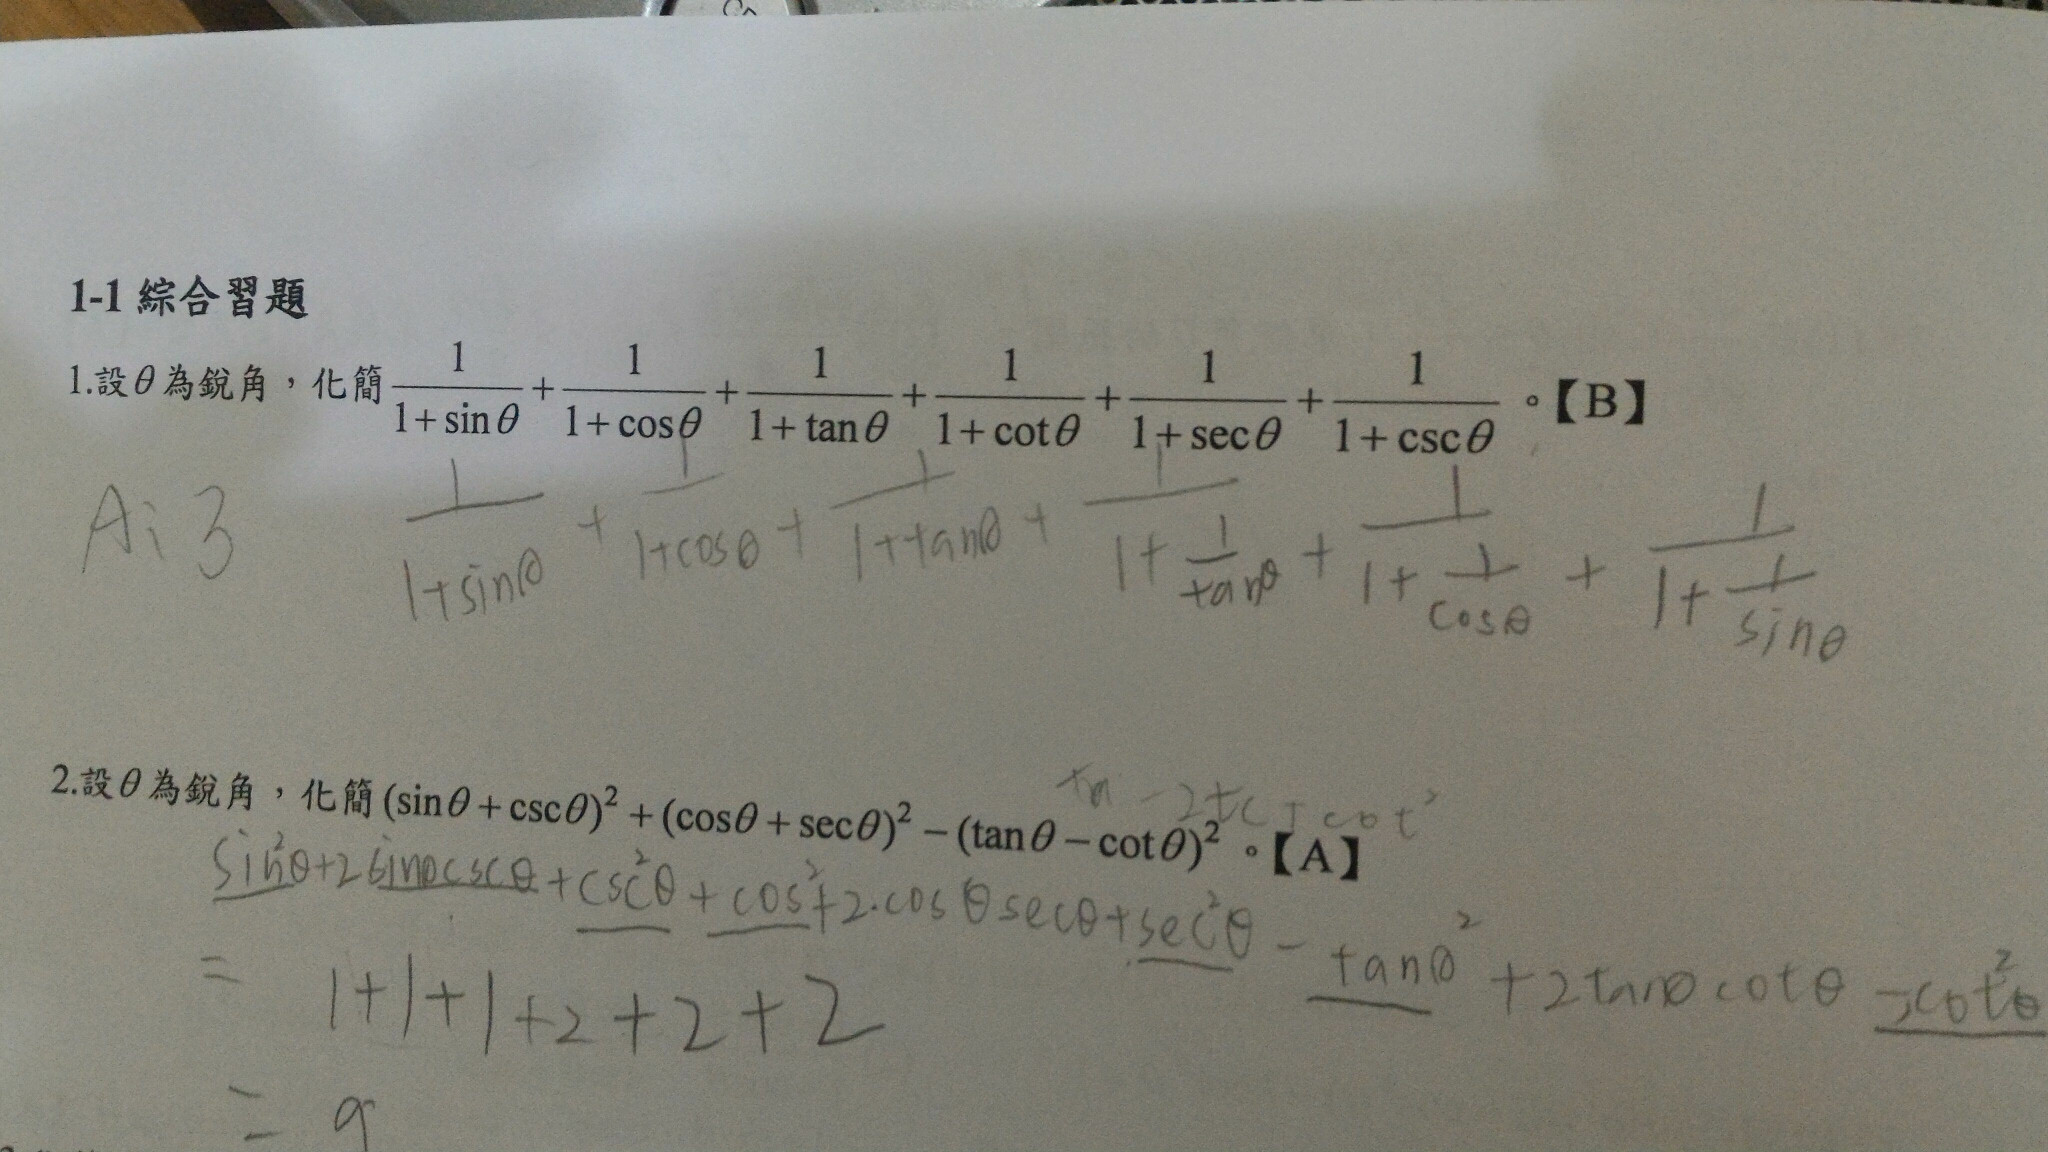 1-1 綜合習題
1.設θ為銳角，化簡 1/(1+sinθ) + 1/(1+cosθ) + 1/(1+tanθ) + 1/(1+cotθ) + 1/(1+secθ) + 1/(1+cscθ) 。【B】
Ai 3
1/(1+sinθ) + 1/(1+cosθ) + 1/(1+tanθ) + 1/(1+1/tanθ) + 1/(1+1/cosθ) + 1/(1+1/sinθ)
2.設θ為銳角，化簡(sinθ+cscθ)²+(cosθ+secθ)²−(tanθ−cotθ)²。【A】
sin²θ+2sinθcscθ+csc²θ+cos²+2·cosθsecθ+sec²θ−tanθ²+2tanθcotθ−cot²θ
= 1+1+1+2+2+2
= 9